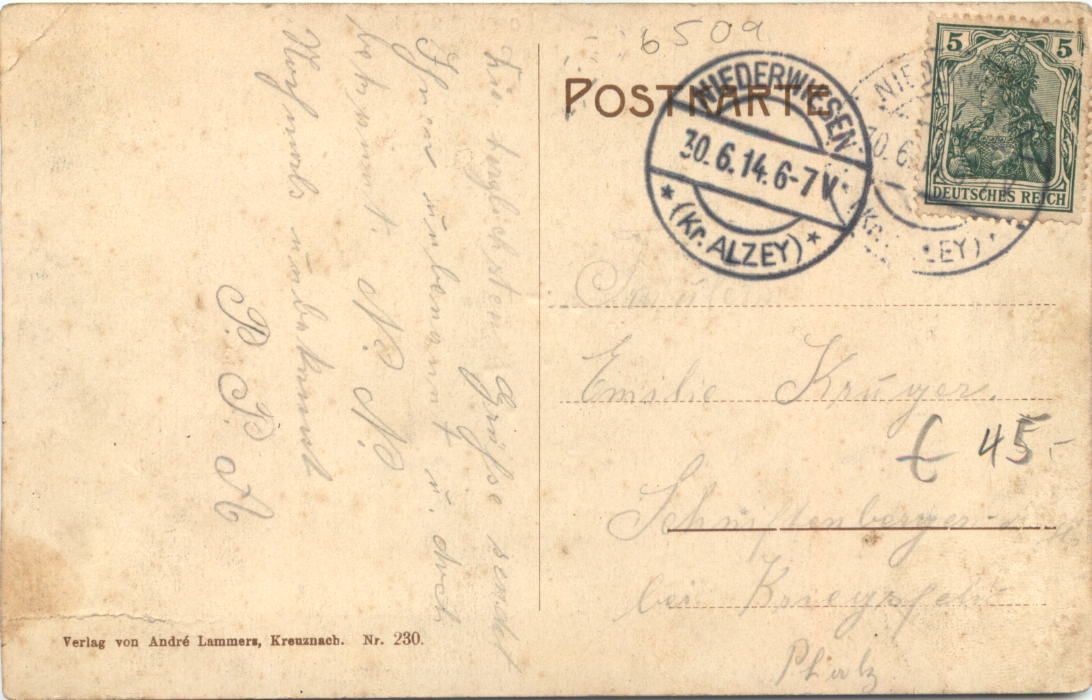 6509
POSTKARTE
5 5
DEUTSCHES REICH
NIEDERWIESEN
30.6.14.6-7V.
* (Kr. ALZEY) *
Die herzlichsten Grüsse sendet
Ihnen unbenannt u. doch
bekannt. N. N.
Nochmals unbekannt
P. P. A
Fräulein
Emilie Krüger.
€ 45-
bei Kriegsfeld
Pfalz
Verlag von André Lammers, Kreuznach. Nr. 230.